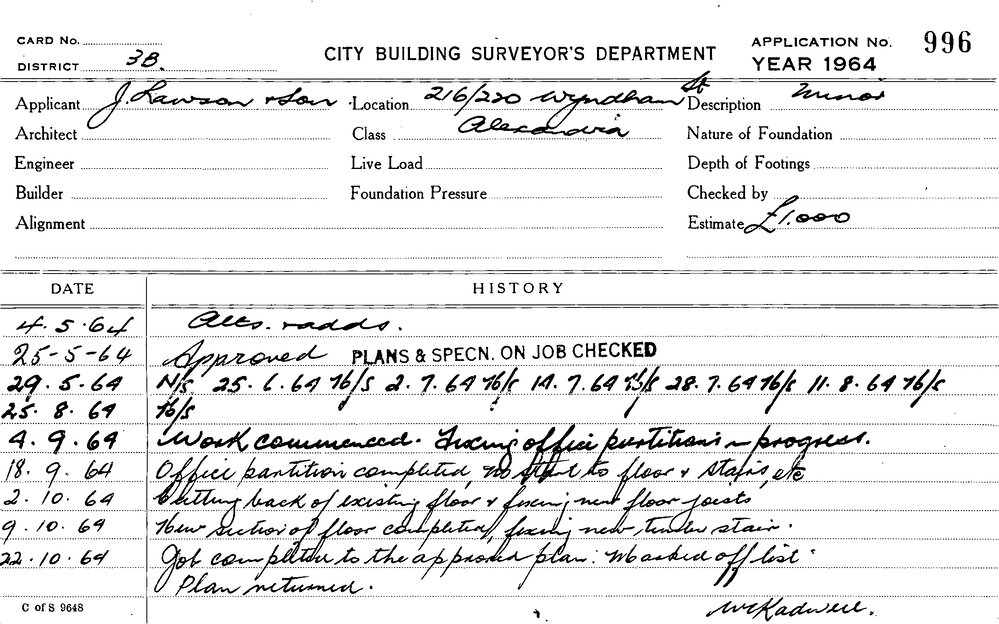 CARD No.
DISTRICT 3B.
CITY BUILDING SURVEYOR'S DEPARTMENT
APPLICATION No. 996
YEAR 1964
Applicant J. Lawson & Son Location 216/220 Wyndham St Description Minor
Architect Class Alexandria Nature of Foundation
Engineer Live Load Depth of Footings
Builder Foundation Pressure Checked by
Alignment Estimate £1.000
DATE HISTORY
4.5.64 Alts. & adds.
25-5-64 Approved PLANS & SPECN. ON JOB CHECKED
29.5.64 N/s 25.6.64 N/s 2.7.64 N/s 14.7.64 N/s 28.7.64 N/s 11.8.64 N/s
25.8.64 N/s
4.9.64 Work commenced. Fixing office partitions in progress.
18.9.64 Office partition completed, no start to floor & stairs, etc
2.10.64 Cutting back of existing floor & fixing new floor joists
9.10.64 New section of floor completed, fixing new timber stair.
22.10.64 Job completed to the approved plan. Marked off list.
Plan returned.
C of S 9648